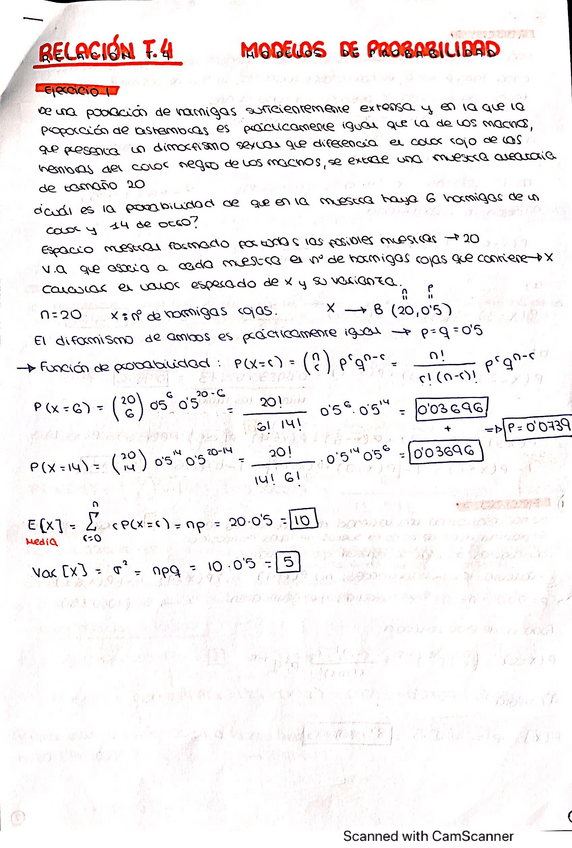 RELACIÓN T.4 MODELOS DE PROBABILIDAD
Ejercicio 1
De una población de hormigas suficientemente extensa y en la que la
proporción de las hembras es prácticamente igual que la de los machos,
que presenta un dimorfismo sexual que diferencia el color rojo de las
hembras del color negro de los machos, se extrae una muestra aleatoria
de tamaño 20
¿Cuál es la probabilidad de que en la muestra haya 6 hormigas de un
color y 14 de otro?
Espacio muestral formado por todas las posibles muestras → 20
v.a que asocia a cada muestra el nº de hormigas rojas que contiene → X
Calcular el valor esperado de X y su varianza.
n=20 X: nº de hormigas rojas. X → B (20, 0'5)
n p
El diformismo de ambos es prácticamente igual → p=q=0'5
→ Función de probabilidad: P(X=r) = (n r) p^r q^n-r = n! / r!(n-r)! p^r q^n-r
P(X=6) = (20 6) 0'5^6 0'5^20-6 = 20! / 6! 14! 0'5^6 · 0'5^14 = 0'03696
+ => P=0'0739
P(X=14) = (20 14) 0'5^14 0'5^20-14 = 20! / 14! 6! · 0'5^14 0'5^6 = 0'03696
E[X] = Σ n r=0 r P(X=r) = np = 20·0'5 = 10
Media
Var [X] = σ² = npq = 10·0'5 = 5
Scanned with CamScanner